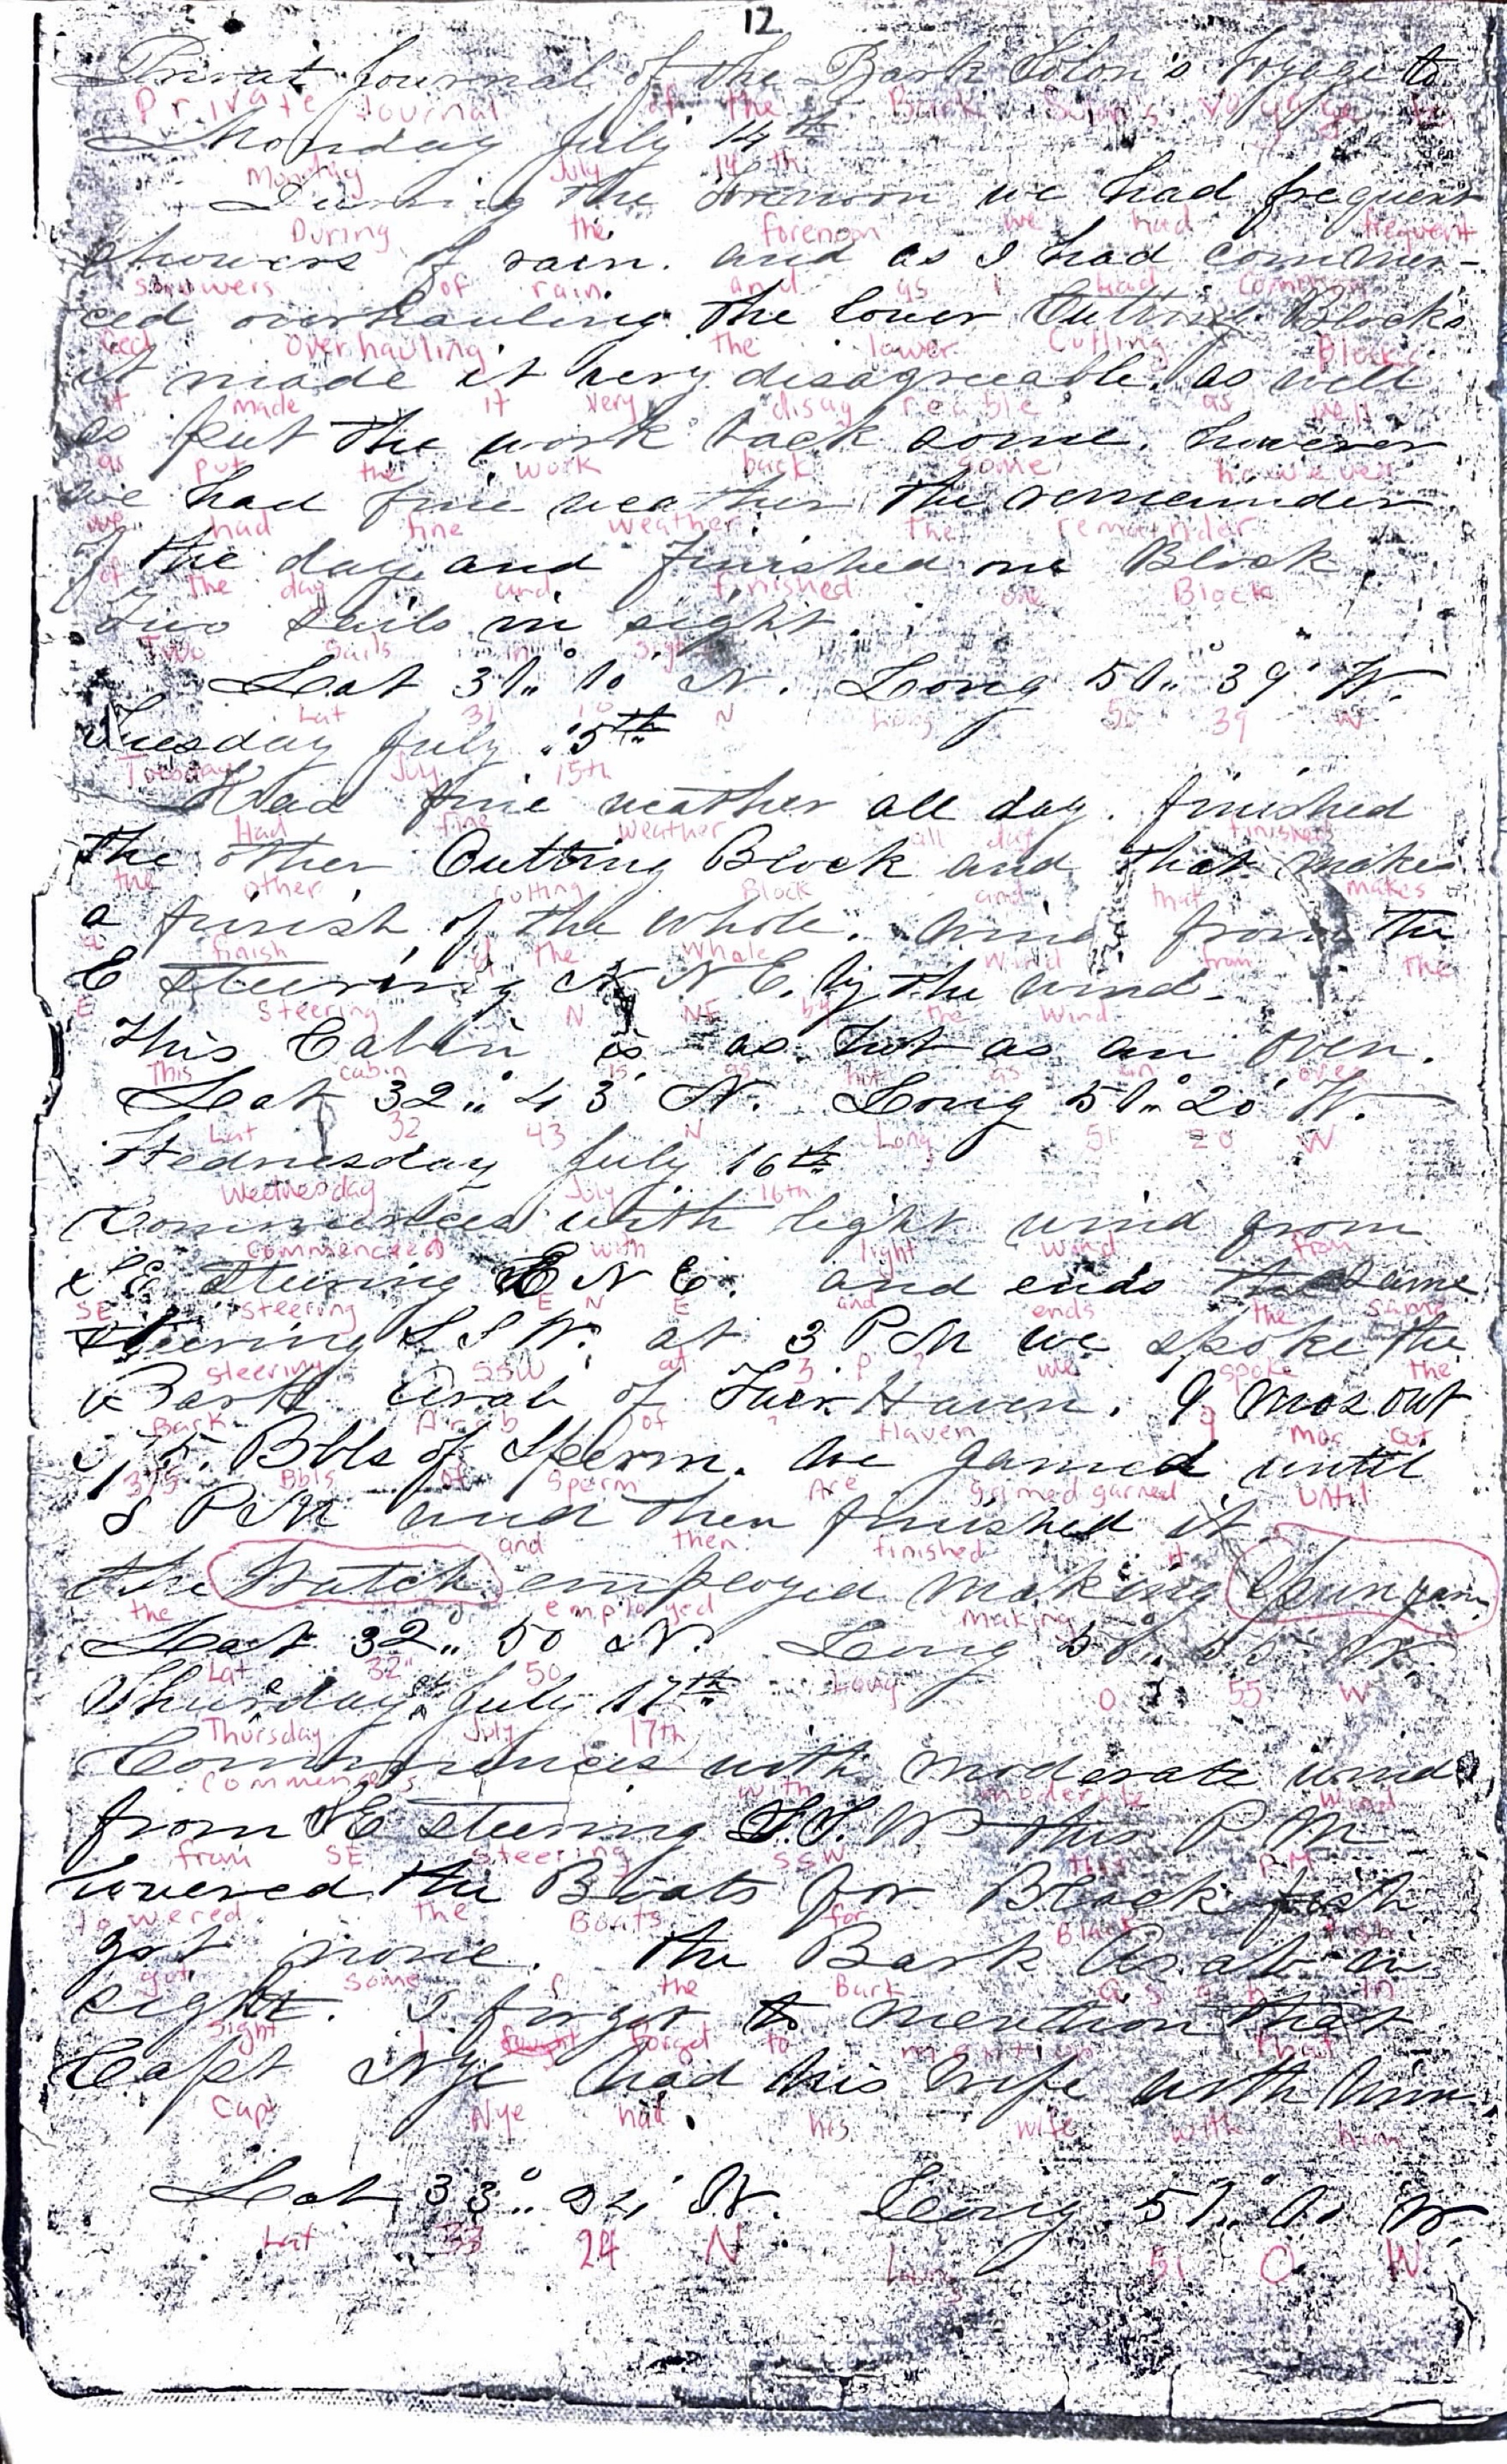 12
Privat Journal of the Bark Solon's Voyage to
Private Journal of the Bark Solon's Voyage to
Monday July 14th
Monday July 14th
During the forenoon we had frequent
During the forenoon we had frequent
showers of rain. and as I had commen-
showers of rain and as I had common
ced overhauling the lower Cutting Blocks
ced overhauling the lower Cutting Blocks
it made it very disagreeable. as well
it made it very disagreeable as well
as put the work back some. however
as put the work back some however
we had fine weather the remainder
we had fine weather the remainder
of the day and finished one Block.
of the day and finished one Block
Two Sails in sight.
Two Sails in sight
Lat 31° 10' N. Long 51° 39' W.
Lat 31 10 N Long 50 39 W
Tuesday July 15th
Tuesday July 15th
Had fine weather all day. finished
Had fine weather all day finished
the other Cutting Block and that makes
the other cutting Block and that makes
a finish of the whole. wind from the
a finish of the Whole Wind from The
E steering N N E. by the wind.
E Steering N NE by the Wind
This Cabin is as hot as an oven.
This cabin is as hot as an oven
Lat 32° 43' N. Long 51° 20' W.
Lat 32 43 N Long 51 20 W
Wednesday July 16th
Wednesday July 16th
Commences with light wind from
Commenced with light wind from
SE steering E N E. and ends the same
SE steering E N E and ends the same
steering S S W. at 3 P M we spoke the
steering SSW at 3 P ? we spoke the
Bark Arab of Fair Haven. 9 mos out
Bark Arab of ? Haven 9 mos out
375. Bbls of Sperm. we gamed until
375 Bbls of Sperm Are gamed garned until
8 P M and then finished it
and then finished it
the Watch employed making Spunyarn
the employed making
Lat 32° 50' N. Long 50° 55' W.
Lat 32" 50 Long 0 55 W
Thursday July 17th
Thursday July 17th
Commences with moderate wind
Commences with moderate wind
from SE steering S.S.W this P M
from SE steering SSW this P.M
lowered the Boats for Black fish
lowered the Boats for Black fish
got none. the Bark Arab in
got some the Bark in
sight. I forgot to mention that
sight I forget to mention that
Capt Nye had his wife with him
Capt Nye had his wife with him
Lat 33° 24' N. Long 51° 0' W.
Lat 33 24 N Long 51 0 W